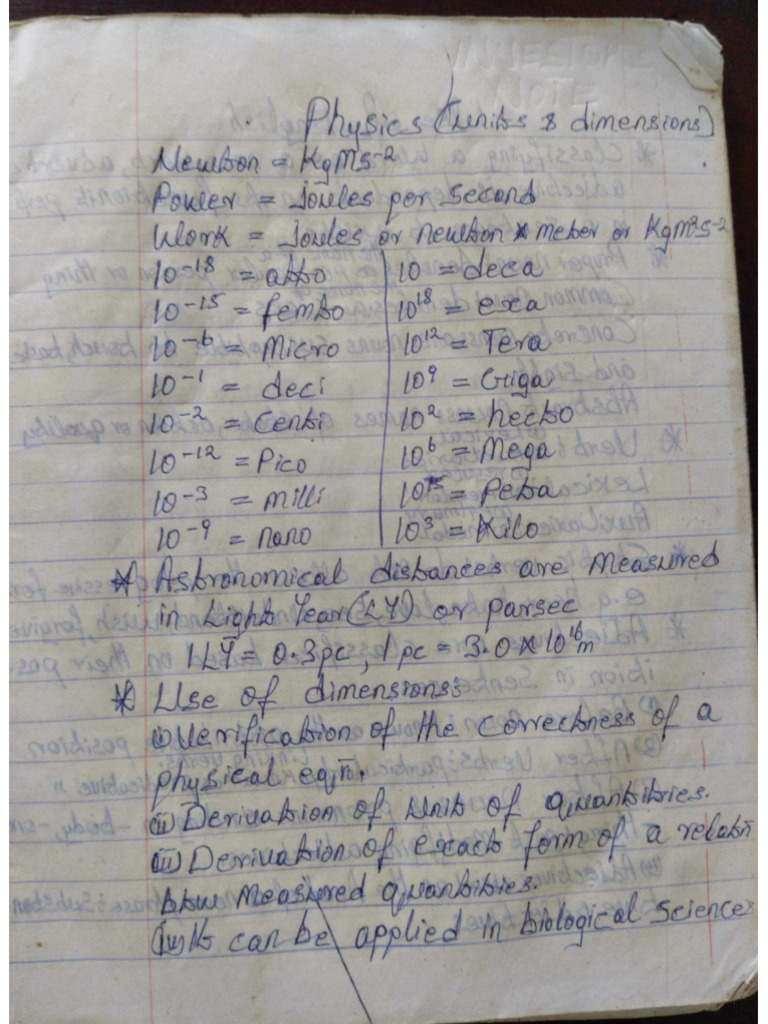 Physics (units & dimensions)
Newton = KgMs-2
Power = joules per second
Work = joules or newton x meter or KgM²s-2
10-18 = atto
10-15 = femto
10-6 = Micro
10-1 = deci
10-2 = centi
10-12 = Pico
10-3 = milli
10-9 = nano
10 = deca
10¹⁸ = exa
10¹² = Tera
10⁹ = Giga
10² = hecto
10⁶ = Mega
10¹⁵ = Peta
10³ = Kilo
* Astronomical distances are measured
in Light Year (LY) or parsec
1LY = 0.3pc, 1pc = 3.0 x 10¹⁶m
* Use of dimensions:
(i) Verification of the correctness of a
physical eq,n.
(ii) Derivation of unit of quantities.
(iii) Derivation of exact form of a relatn
btw measured quantities.
(iv) It can be applied in biological sciences